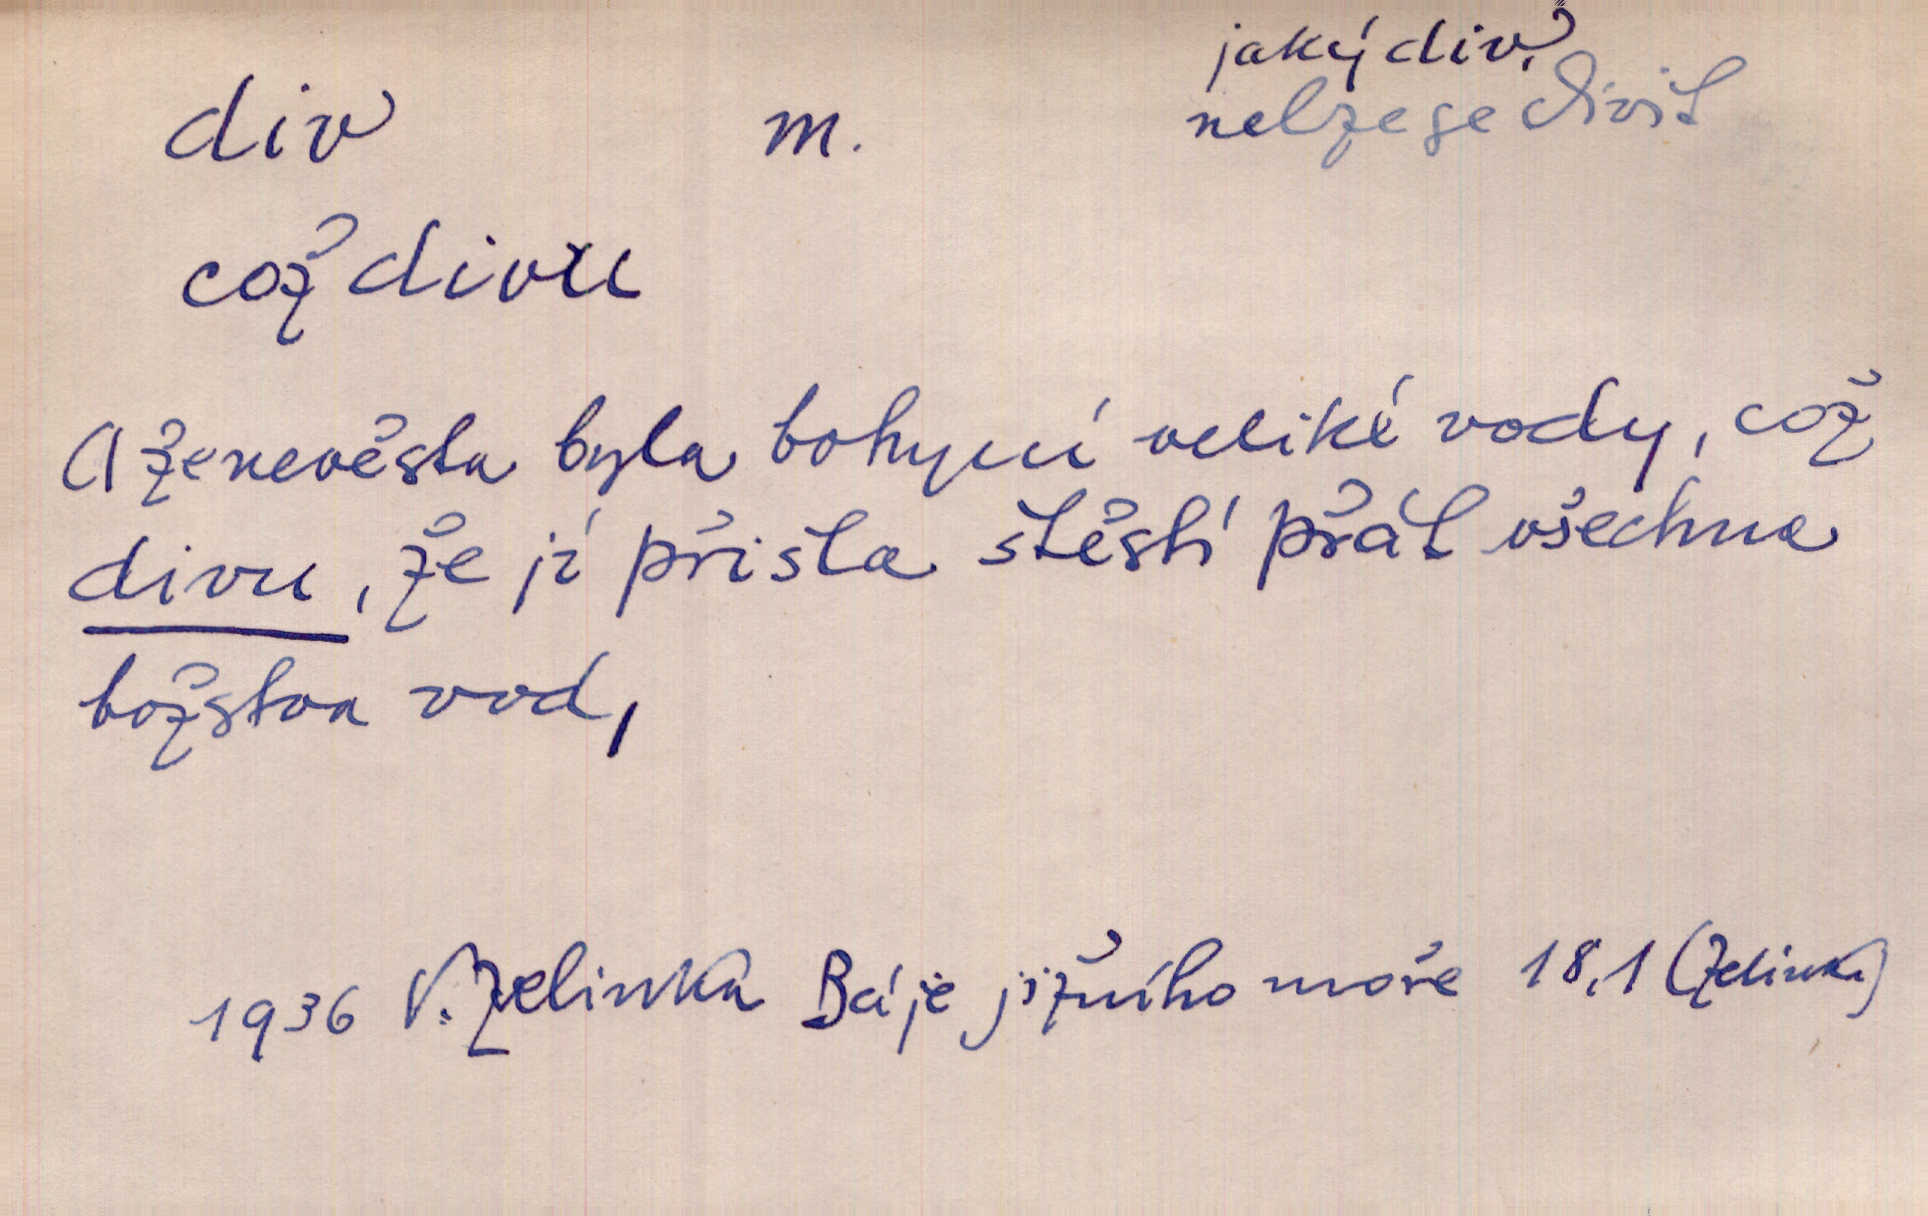 jaký div,
div m. nelze se divit
což divu
A že nevěsta byla bohyní veliké vody, což
divu, že jí přišla štěstí přát všechna
božstva vod,
1936 V. Zelinka Báje jižního moře 18,1 (Zelinka)